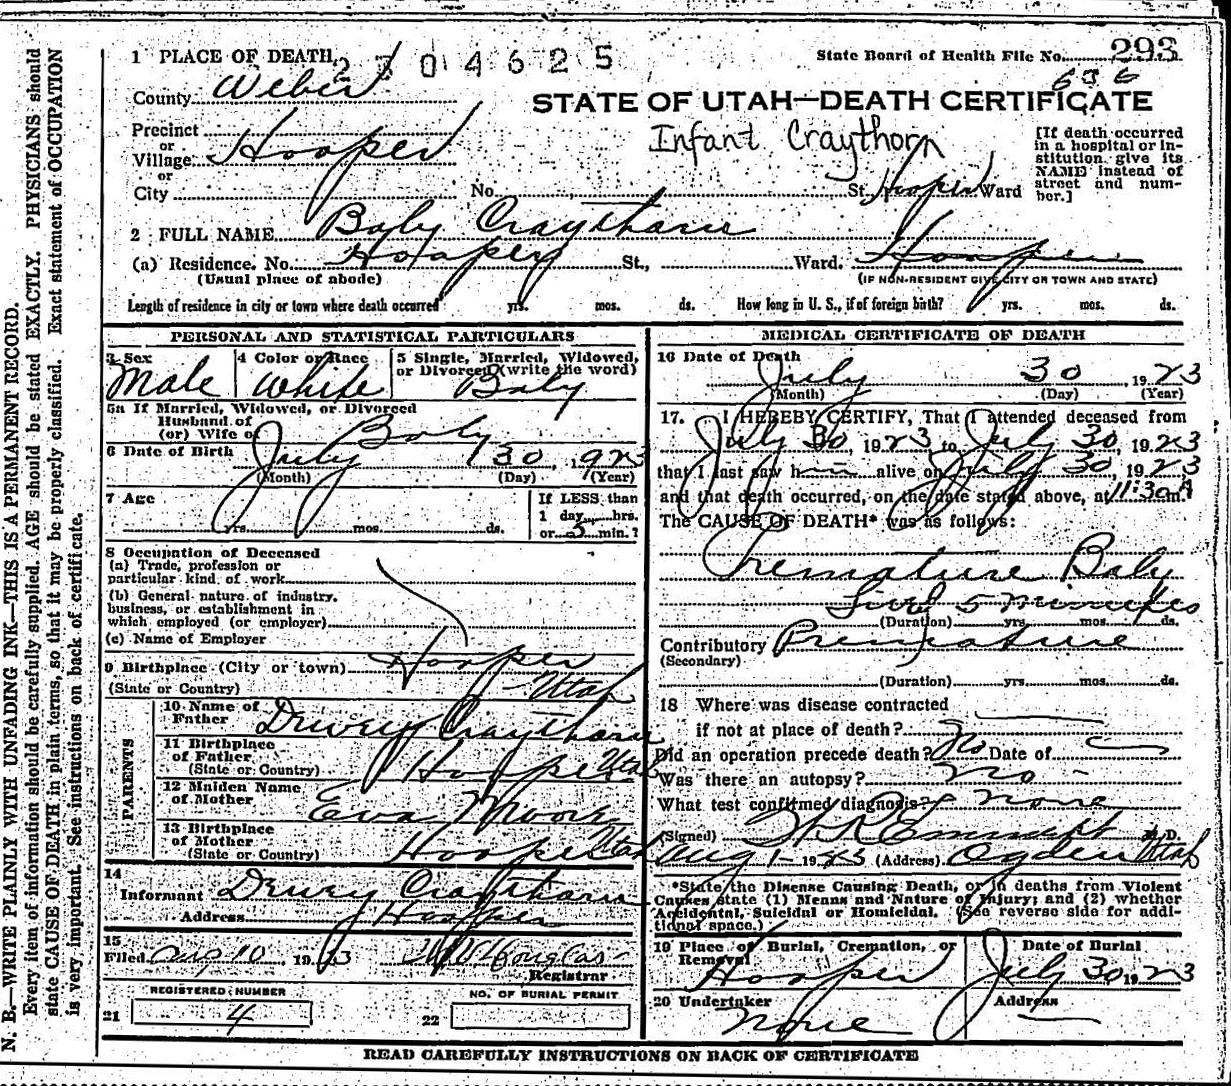 1 PLACE OF DEATH 2304625 State Board of Health File No. 293
636
County Weber
STATE OF UTAH—DEATH CERTIFICATE
Precinct
or
Village Hooper
or
City No. St. Hooper Ward
Infant Craythorn
[If death occurred
in a hospital or in-
stitution, give its
NAME instead of
street and num-
ber.]
2 FULL NAME Baby Craythorn
(a) Residence. No. Hooper St., Ward. Hooper
(Usual place of abode) (IF NON-RESIDENT GIVE CITY OR TOWN AND STATE)
Length of residence in city or town where death occurred yrs. mos. ds. How long in U. S., if of foreign birth? yrs. mos. ds.
PERSONAL AND STATISTICAL PARTICULARS
3 Sex
Male
4 Color or Race
White
5 Single, Married, Widowed,
or Divorced (write the word)
Baby
5a If Married, Widowed, or Divorced
Husband of
(or) Wife of
Baby
6 Date of Birth July 30, 1923
(Month) (Day) (Year)
7 Age
yrs. mos. ds.
If LESS than
1 day, hrs.
or 5 min.?
8 Occupation of Deceased
(a) Trade, profession or
particular kind of work
(b) General nature of industry,
business, or establishment in
which employed (or employer)
(c) Name of Employer
9 Birthplace (City or town) Hooper
(State or Country) Utah
PARENTS
10 Name of
Father Dewey Craythorn
11 Birthplace
of Father
(State or Country) Hooper Utah
12 Maiden Name
of Mother Eva Moore
13 Birthplace
of Mother
(State or Country) Hooper Utah
14
Informant Dewey Craythorn
Address Hooper
15
Filed Aug 10, 1923
Registrar
REGISTERED NUMBER
21 4
NO. OF BURIAL PERMIT
22
MEDICAL CERTIFICATE OF DEATH
16 Date of Death
July 30 1923
(Month) (Day) (Year)
17. I HEREBY CERTIFY, That I attended deceased from
July 30, 1923 to July 30, 1923
that I last saw him alive on July 30, 1923
and that death occurred, on the date stated above, at 11:30 A m.
The CAUSE OF DEATH* was as follows:
Premature Baby
Lived 5 Minutes
(Duration) yrs. mos. ds.
Contributory Premature
(Secondary)
(Duration) yrs. mos. ds.
18 Where was disease contracted
if not at place of death?
Did an operation precede death? No Date of
Was there an autopsy? no
What test confirmed diagnosis? none
(Signed) M. D.
Aug 1- 1923 (Address) Ogden Utah
*State the Disease Causing Death, or in deaths from Violent
Causes state (1) Means and Nature of Injury; and (2) whether
Accidental, Suicidal or Homicidal. (See reverse side for addi-
tional space.)
19 Place of Burial, Cremation, or
Removal
Hooper
Date of Burial
July 30 1923
20 Undertaker
None
Address
READ CAREFULLY INSTRUCTIONS ON BACK OF CERTIFICATE
N. B.—WRITE PLAINLY WITH UNFADING INK—THIS IS A PERMANENT RECORD.
Every item of information should be carefully supplied. AGE should be stated EXACTLY. PHYSICIANS should
state CAUSE OF DEATH in plain terms, so that it may be properly classified. Exact statement of OCCUPATION
is very important. See instructions on back of certificate.